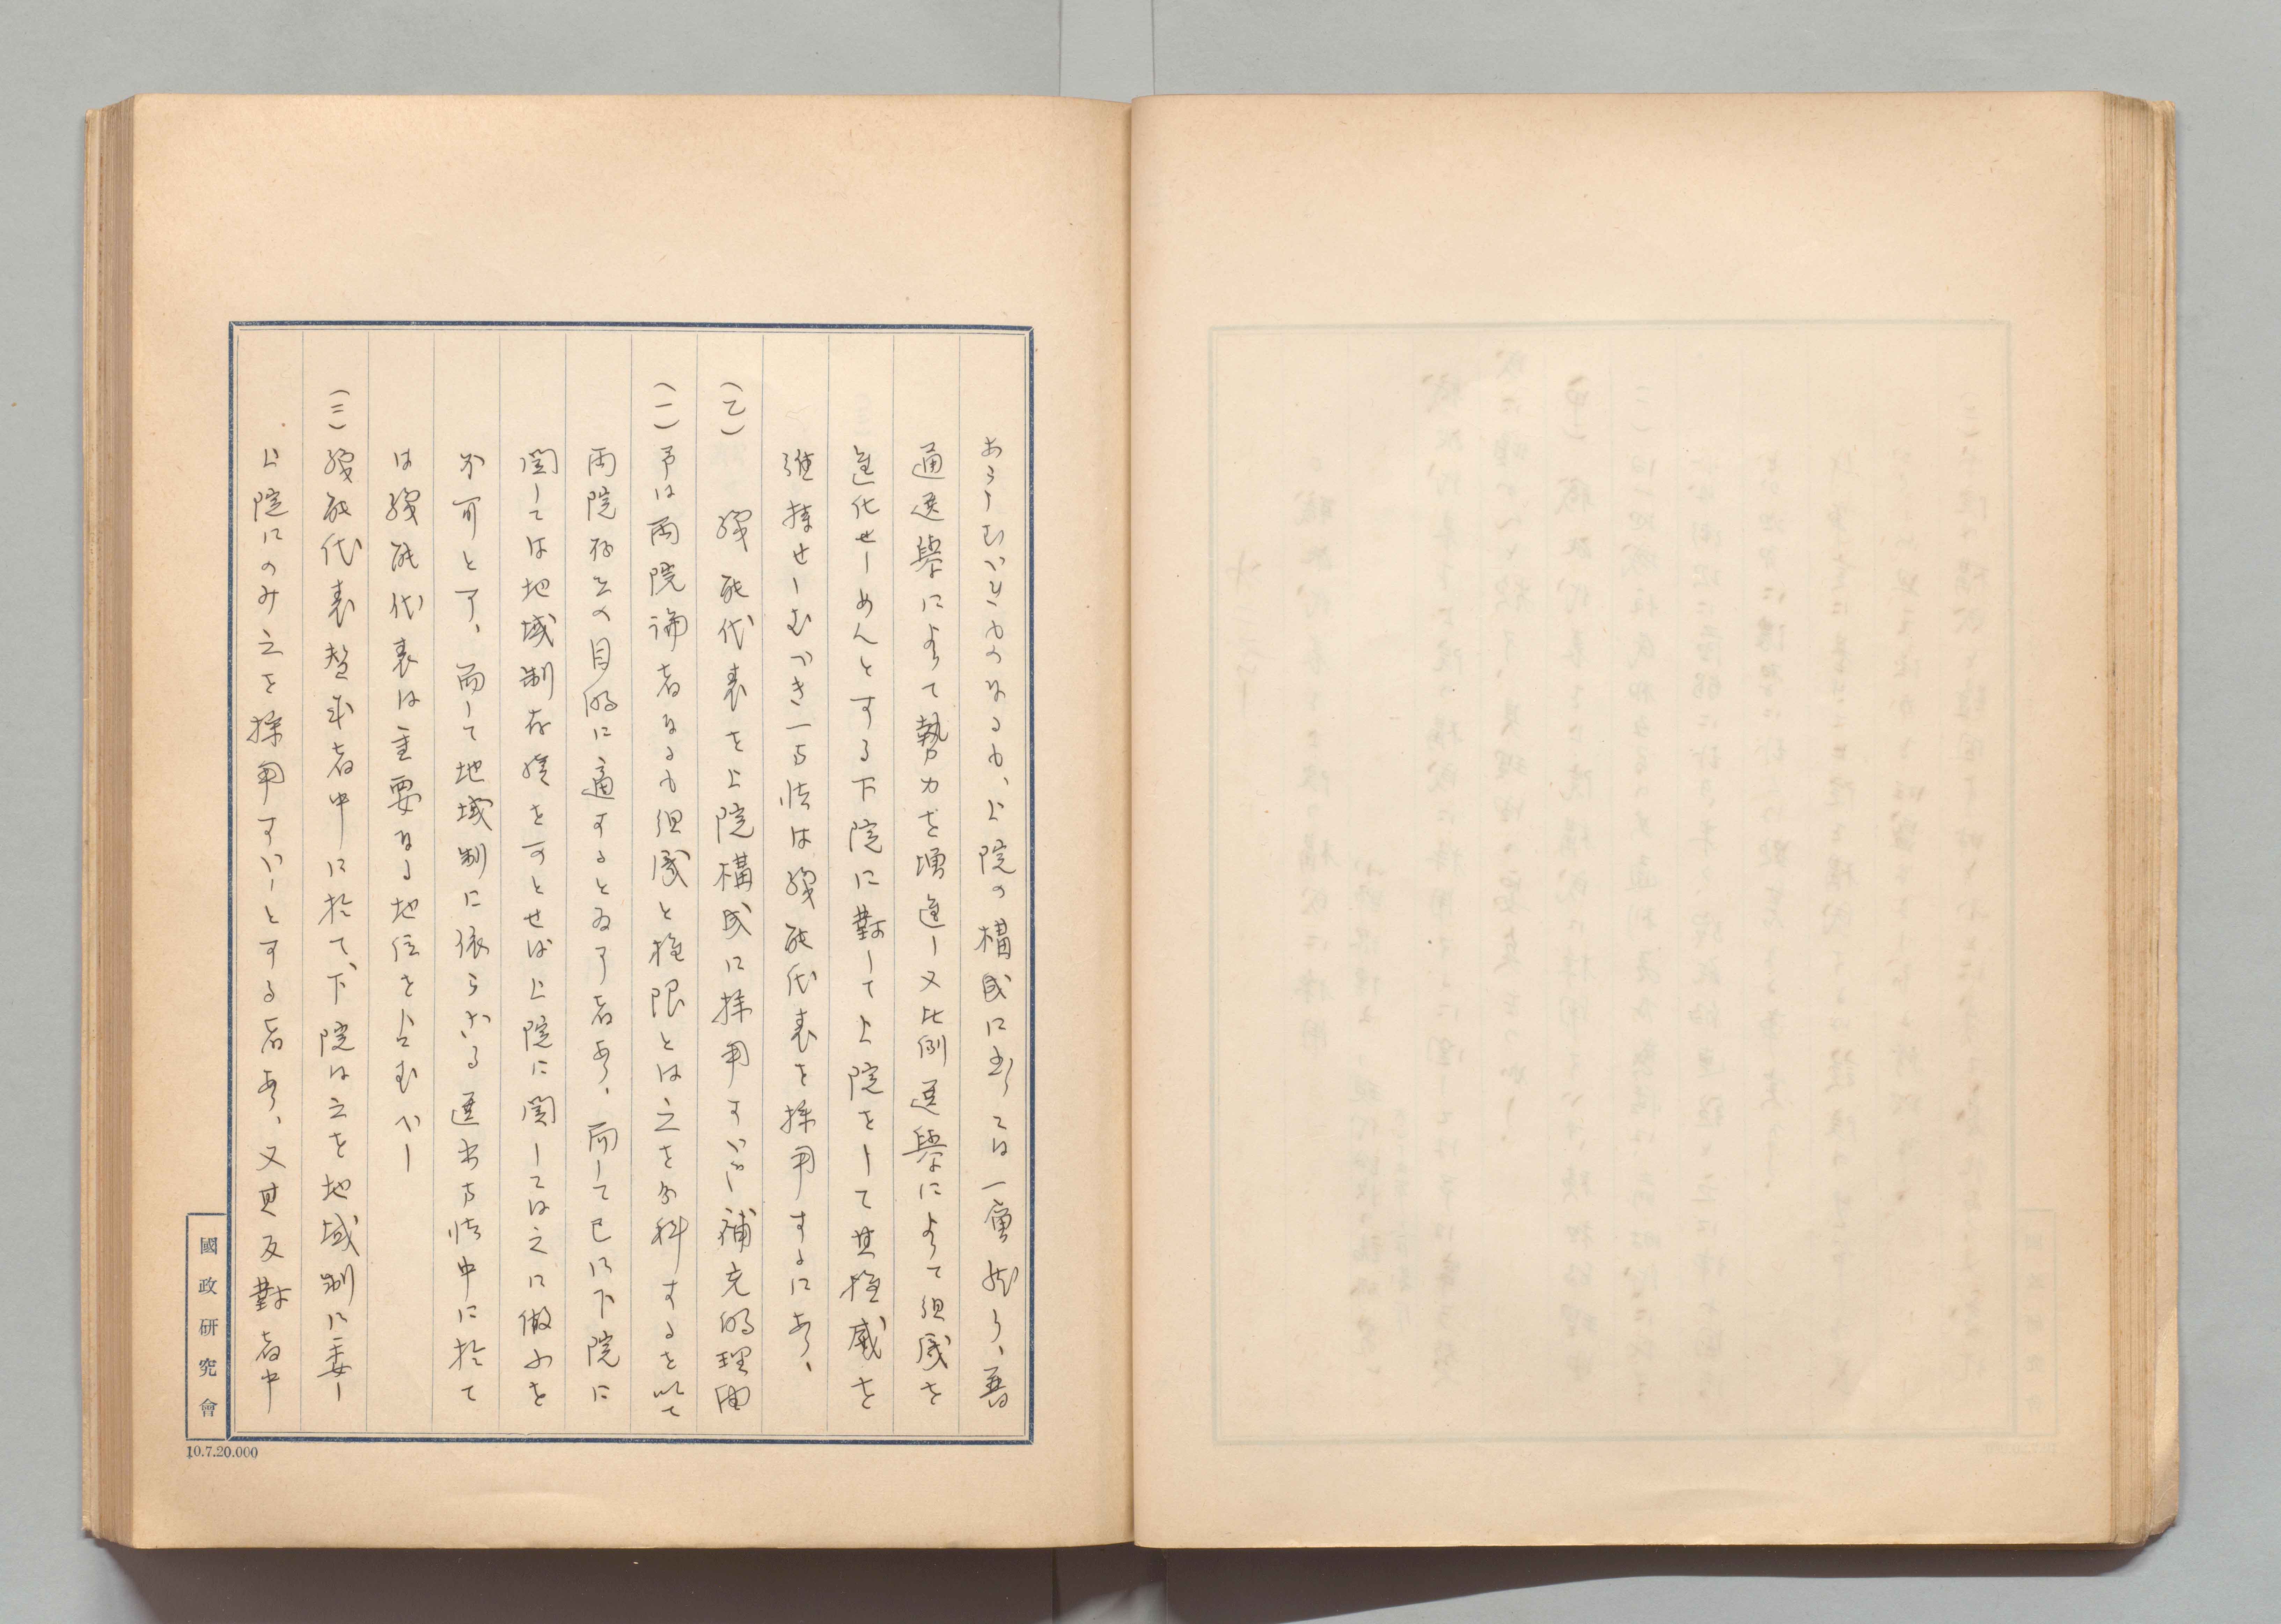 あらしむべきものなるも、上院の構成に至りては一層然り、普
通選擧によりて勢力を増進し又比例選擧によりて組成を
進化せしめんとする下院に對して上院をして其權威を
維持せしむべき一方法は職能代表を採用するにあり、
(乙) 職能代表を上院構成に採用すべき補充的理由
(一)予は両院論者なるも組成と権限とは之を分科するを以て
両院存立の目的に適するとなす者あり、而して已に下院に
関しては地域制存續を可とせば上院に関しては之に倣ふを
不可とす、而して地域制に依らざる選出方法中に於て
は職能代表は主要なる地位を占むべし
(二)職能代表賛成者中に於て、下院は之を地域制に委し
上院にのみ之を採用すべしとする者あり、又其反對者中
國政研究會
10.7.20.000